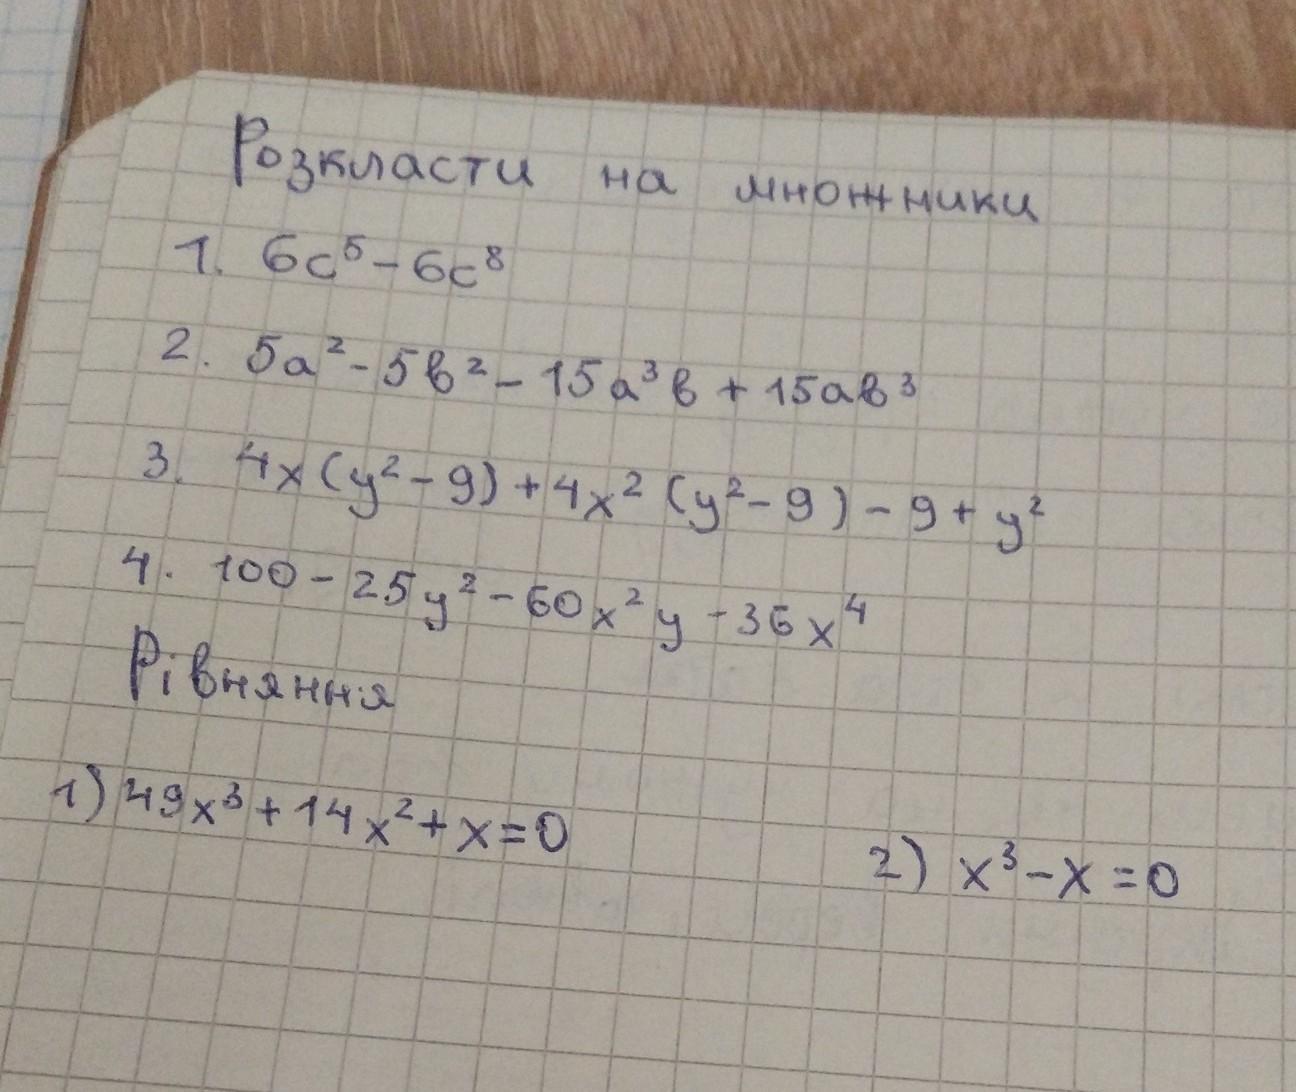 Розкласти на множники
1. 6c⁵ - 6c⁸
2. 5a² - 5b² - 15a³b + 15ab³
3. 4x(y² - 9) + 4x²(y² - 9) - 9 + y²
4. 100 - 25y² - 60x²y - 36x⁴
Рівняння
1) 49x³ + 14x² + x = 0
2) x³ - x = 0